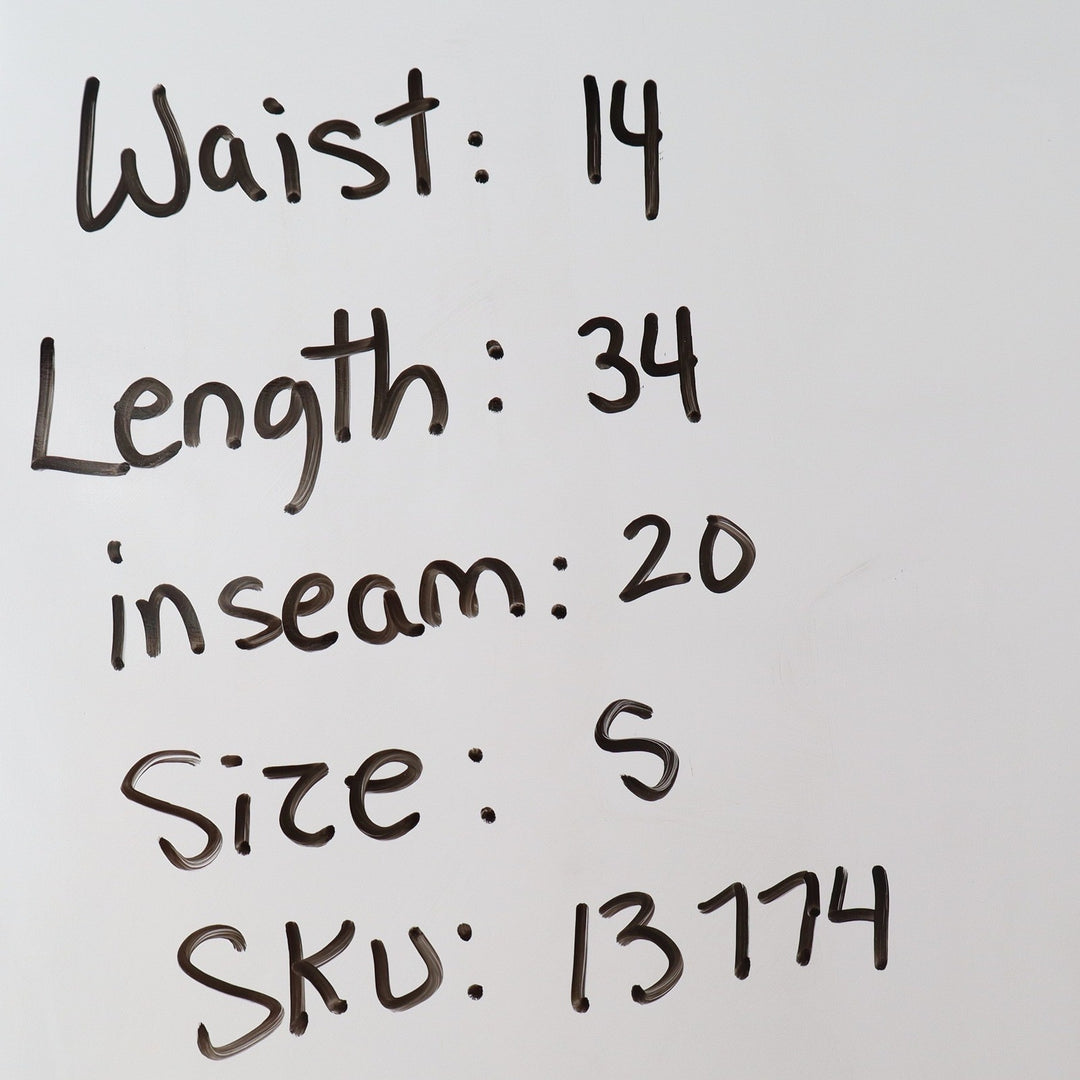 Waist: 14
Length: 34
inseam: 20
Size: S
SKU: 13774